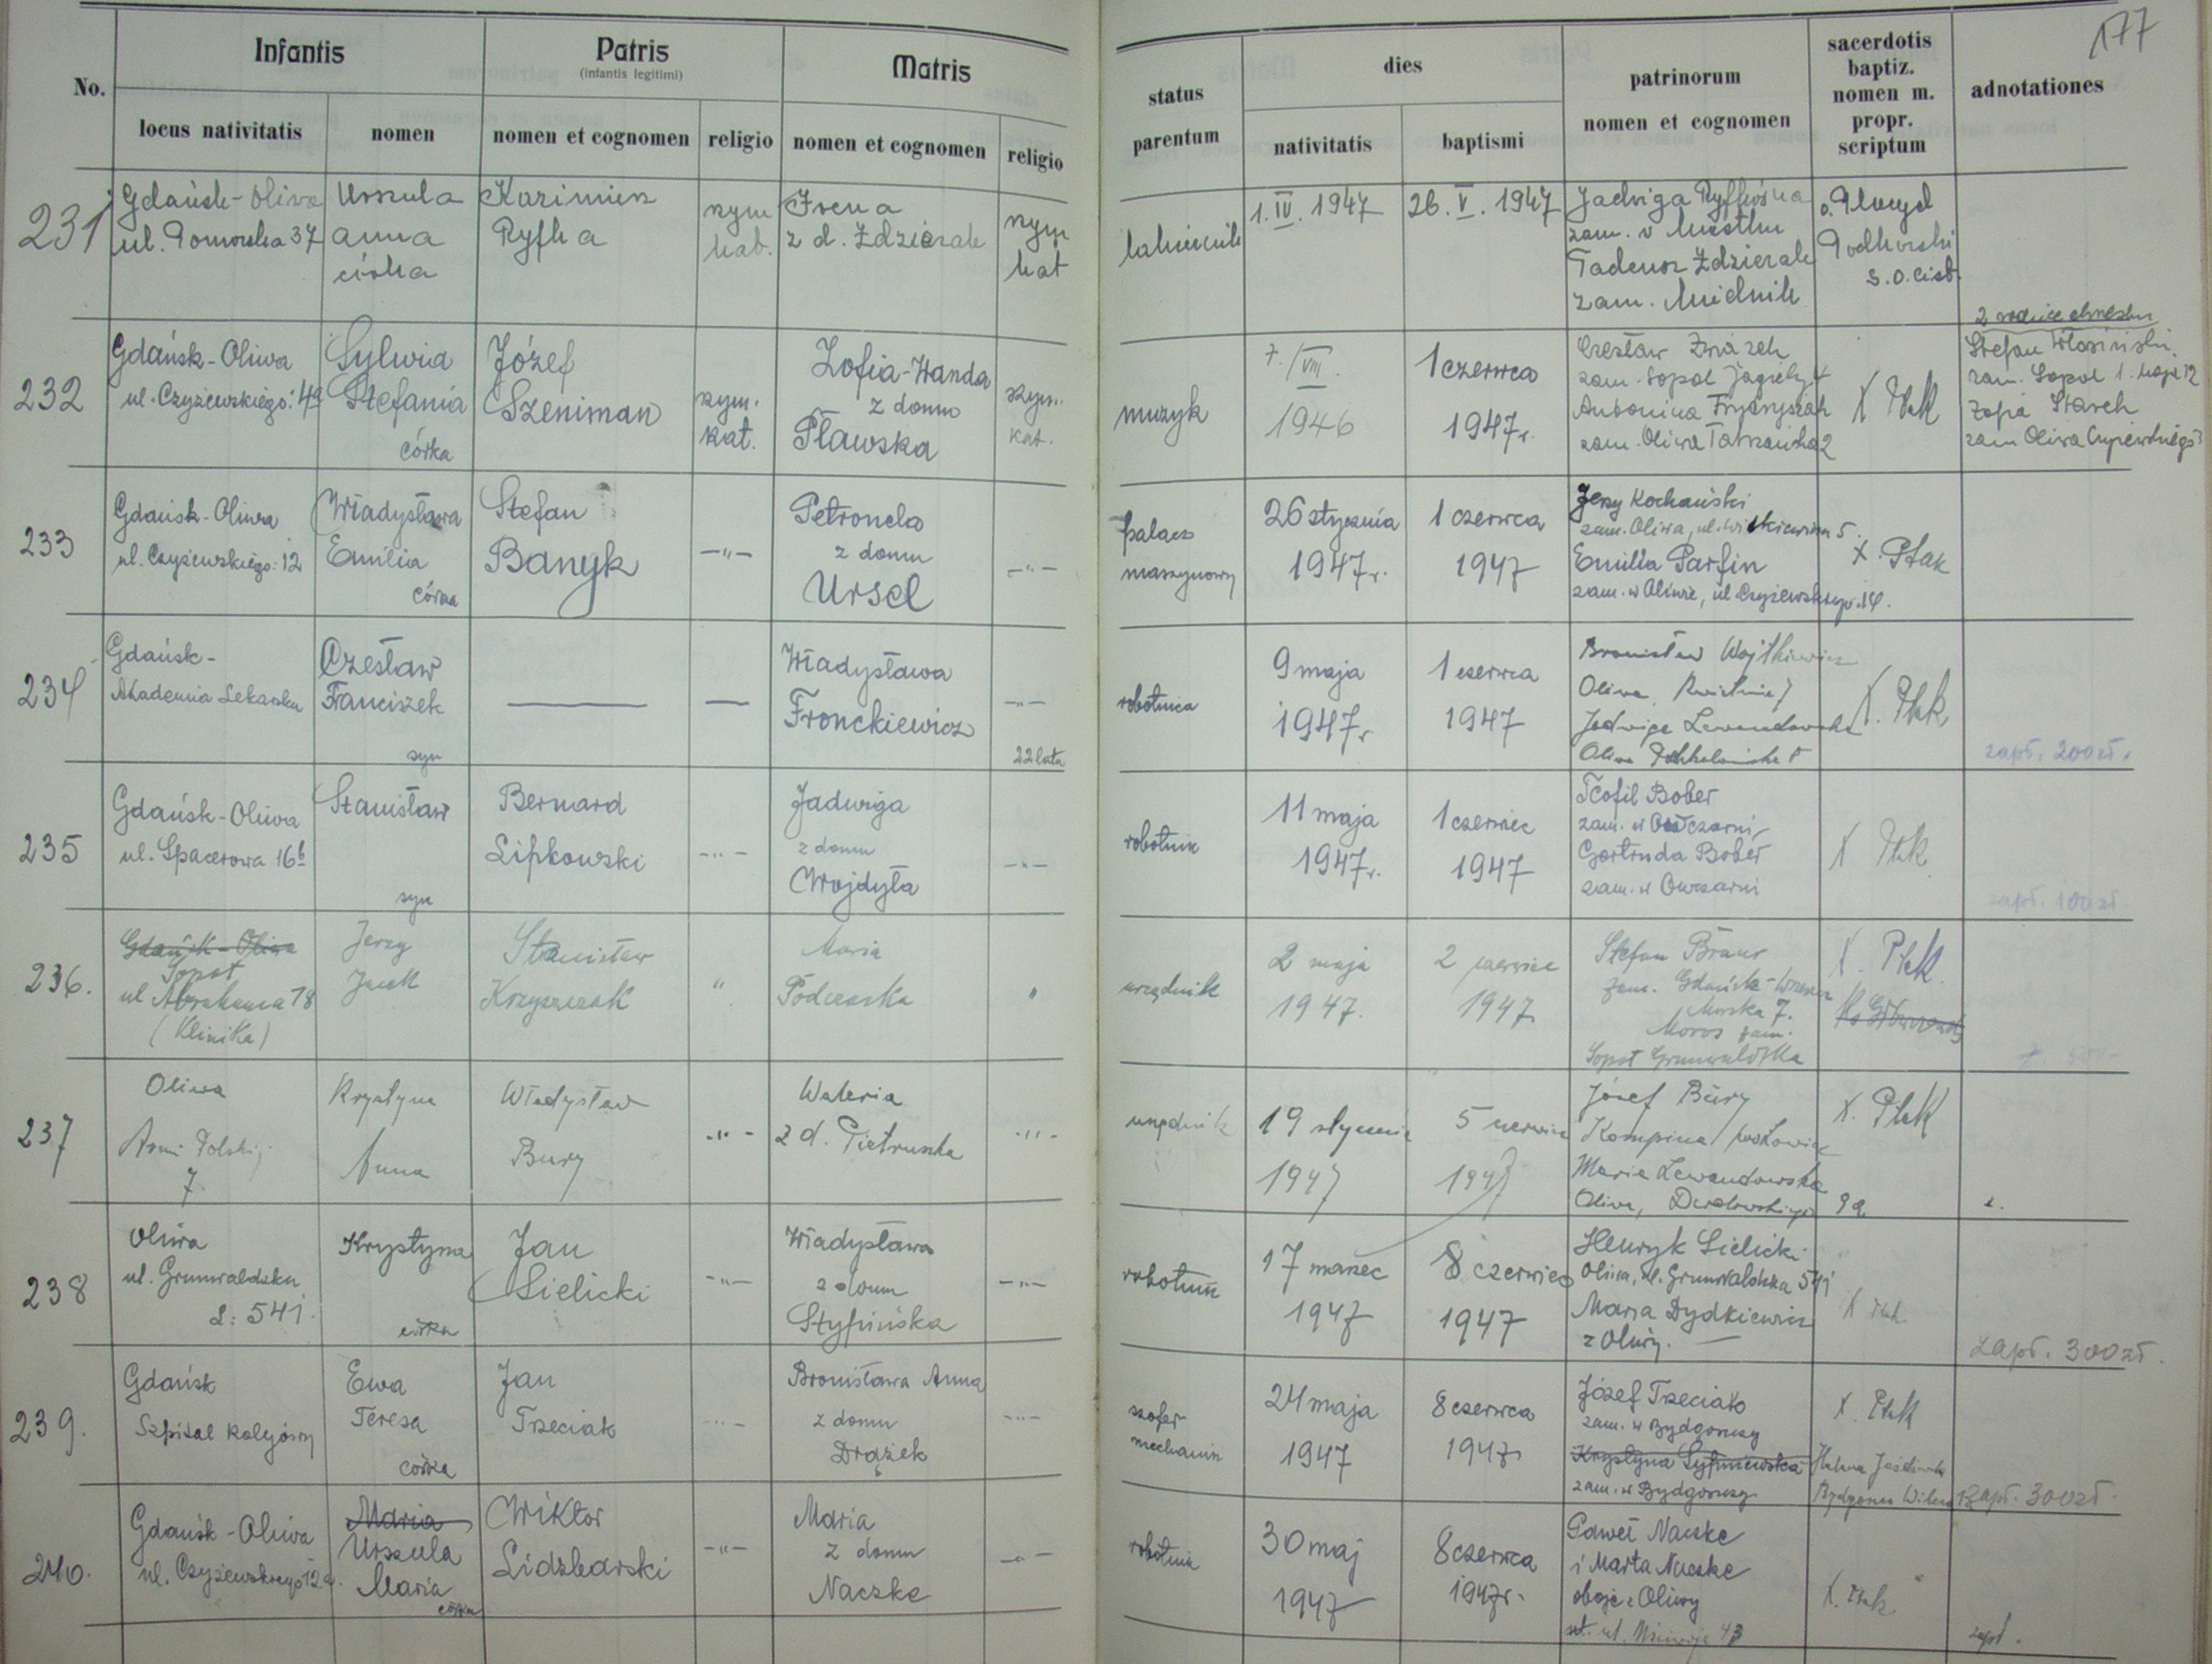 177
Infantis Patris Matris
(infantis legitimi)
No. locus nativitatis nomen nomen et cognomen religio nomen et cognomen religio
status parentum dies nativitatis baptismi patrinorum nomen et cognomen sacerdotis baptiz. nomen m. propr. scriptum adnotationes
231
Gdańsk-Oliva
ul. Pomorska 37
Urszula
Anna
córka
Kazimierz
Ryfka
rzym
kat.
Irena
z d. Zdzierak
rzym
kat
1. IV. 1947
26. V. 1947
Jadwiga Ryfkówna
zam. w
Tadeusz Zdzierak
zam.
232
Gdańsk-Oliwa
ul. Czyżewskiego: 4a
Sylwia
Stefania
córka
Józef
Szeniman
rzym.
kat.
Zofia-Wanda
z domu
Pławska
rzym.
kat.
muzyk
7./VIII.
1946
1 czerwca
1947r.
Czesław
zam. Sopot
Antonina Frydryszak
zam. Oliwa Tatrzańska 2
X Ptak
Stefan
zam. Sopot 1. Maja 12
zam Oliwa
233
Gdańsk-Oliwa
ul. Czyżewskiego: 12
Władysława
Emilia
córka
Stefan
Banyk
-"-
Petronela
z domu
Ursel
-"-
palacz
maszynowy
26 stycznia
1947r.
1 czerwca
1947
Jerzy Kochański
zam. Oliwa, ul. 5.
Emilia Parfin
zam. w Oliwie, ul Czyżewskiego. 14.
X. Ptak
234
Gdańsk-
Akademia Lekarska
Czesław
Franciszek
syn
Władysława
Fronckiewicz
-"-
22 lata
robotnica
9 maja
1947r
1 czerwca
1947
Bronisław Wojtkiewicz
Oliwa, Kwietna 7
Jadwiga Lewandowska
Oliwa
X. Ptak
zapł. 200 zł.
235
Gdańsk-Oliwa
ul. Spacerowa 16b
Stanisław
syn
Bernard
Lipkowski
-"-
Jadwiga
z domu
Wojdyła
-"-
robotnik
11 maja
1947r.
1 czerwiec
1947
Teofil Bober
zam. w Owczarni
Gertruda Bober
zam. w Owczarni
X Ptak
zapł. 100 zł.
236.
Gdańsk-Oliwa
Sopot
ul Abrahama 78
(Klinika)
Jerzy
Jacek
Stanisław
Krzyszczak
"
Maria
Podczaska
"
urzędnik
2 maja
1947.
2 czerwiec
1947
Stefan Braur
zam. Gdańsk-Wrzeszcz
Morska 7.
Moros zam.
Sopot Grunwaldzka
X. Ptak
237
Oliwa
Armii Polskiej
7.
Krystyna
Anna
Władysław
Bury
-"-
Waleria
z d. Pietruszka
-"-
urzędnik
19 stycznia
1947
5 czerwiec
1947
Józef Bury
Kompina
Maria Lewandowska
Oliwa, 9a
X. Ptak
238
Oliwa
ul. Grunwaldzka
L: 541
Krystyna
córka
Jan
Sielicki
-"-
Władysława
z domu
Stypińska
-"-
robotnik
17 marzec
1947
8 czerwiec
1947
Henryk Sielicki
Oliwa, ul. Grunwaldzka 541
Maria Dydkiewicz
z Oliwy.
X Ptak
zapł. 300 zł.
239.
Gdańsk
Szpital Kolejowy
Ewa
Teresa
córka
Jan
Trzeciak
-"-
Bronisława Anna
z domu
Drążek
-"-
szofer
mechanik
24 maja
1947
8 czerwca
1947
Józef Trzeciak
zam. w Bydgoszczy
Krystyna
zam. w Bydgoszczy
X. Ptak
zapł. 300 zł.
240.
Gdańsk-Oliwa
ul. Czyżewskiego 12a.
Maria
Urszula
Maria
córka
Wiktor
Lidzbarski
-"-
Maria
z domu
Naczke
-"-
robotnik
30 maj
1947
8 czerwca
1947r.
Paweł Naczke
i Marta Naczke
oboje z Oliwy
ul. 43
X. Ptak
zapł.